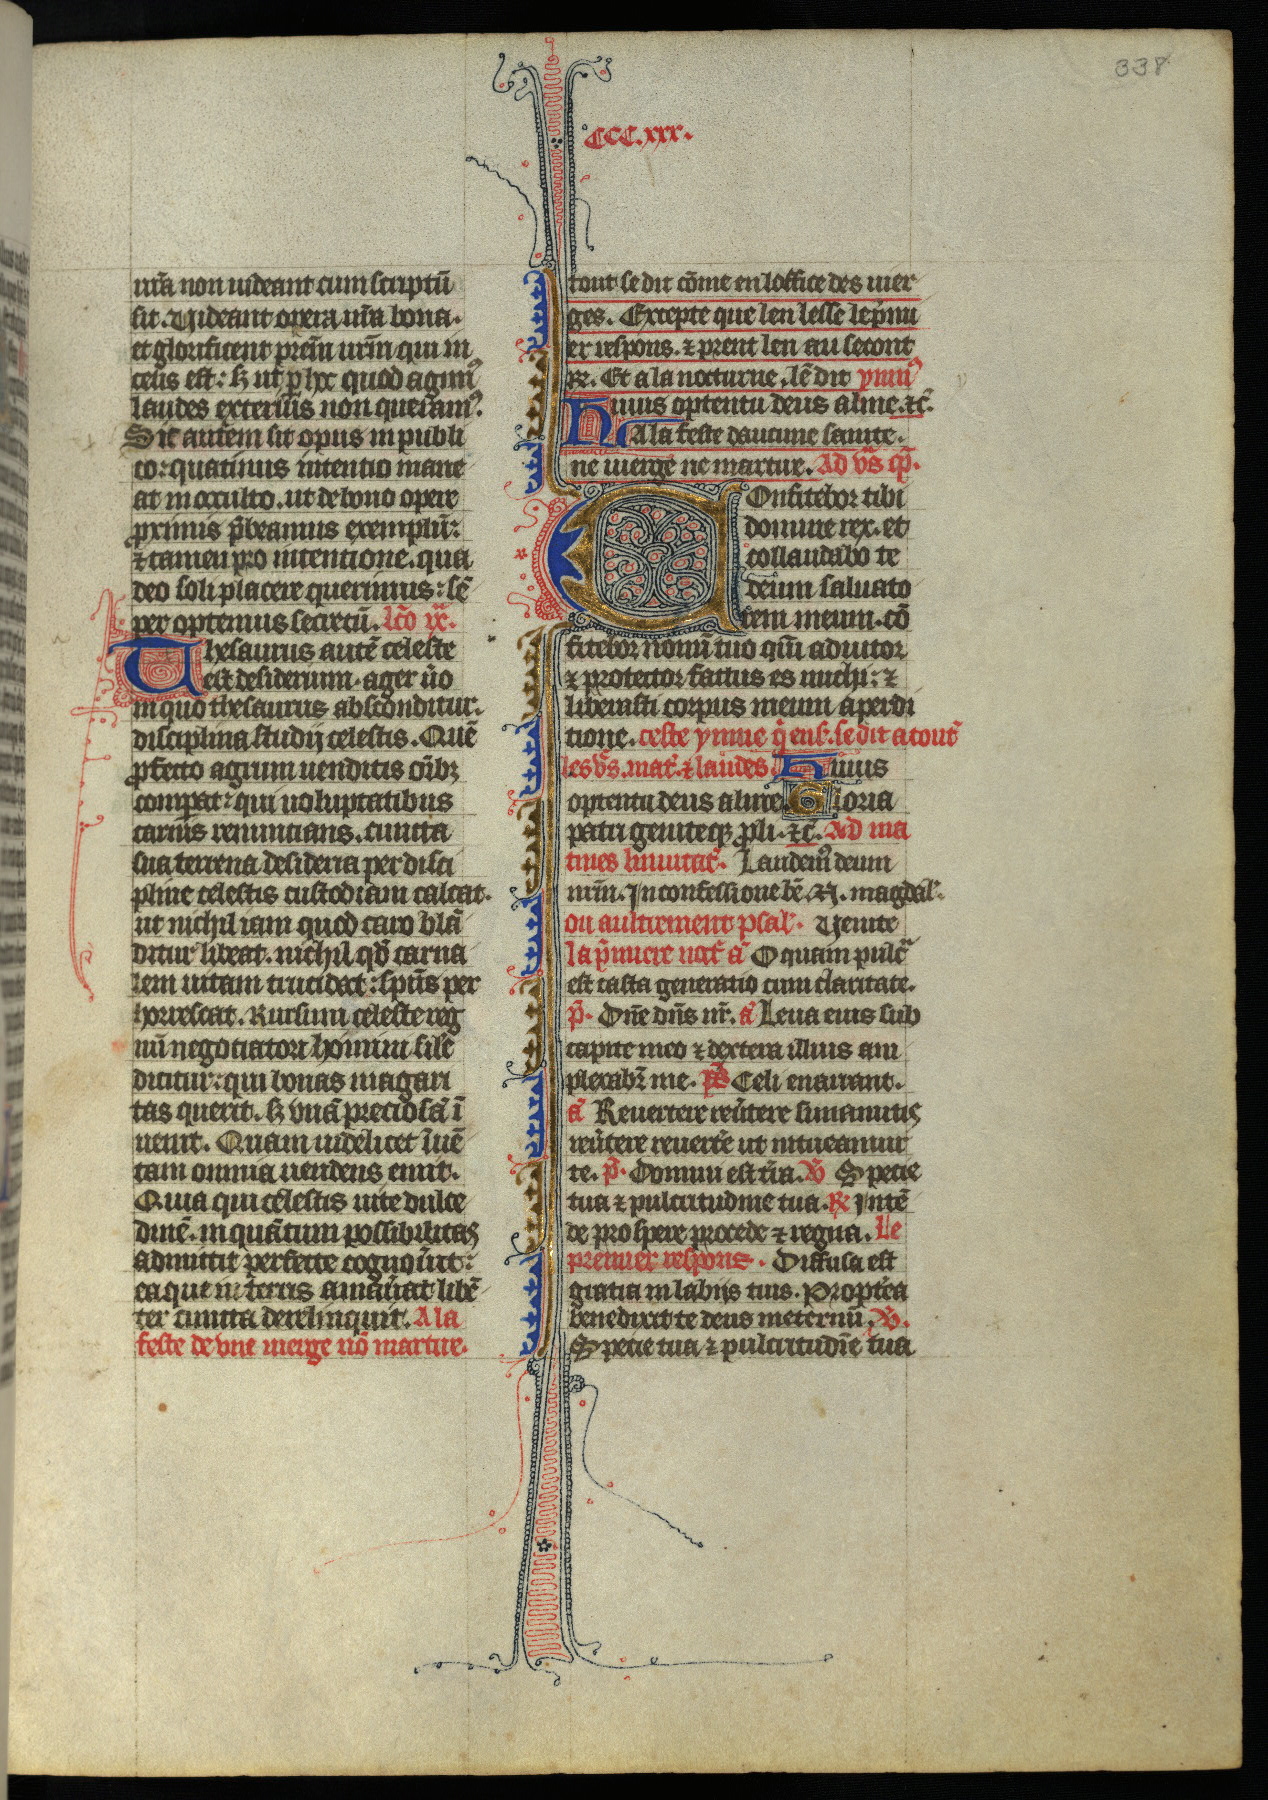 338
CCC.xxx.
ura non uideant cum scriptu
sit. Uideant opera ura bona.
et glorificent prem urm qui in
celis est: s ut p hec quod agim
laudes exterius non queram.
Sic autem sit opus in publi
co: quatinus intentio mane
at in occulto. ut de bono opere
proximis pbeamus exemplu:
⁊ tamen pro intentione. qua
deo soli placere querimus: se
per optemus secretu. lco ix.
Thesaurus aute celeste
est desiderium. ager uo
in quo thesaurus absconditur.
disciplina studii celestis. Que
pfecto agrum uenditis oibz
comparat: qui uoluptatibus
carnis renuntians. cuncta
sua terrena desideria per disci
pline celestis custodiam calcat.
ut nichil iam quod caro blā
ditur libeat. nichil qd carna
lem uitam trucidet: spūs per
horrescat. Rursum celeste reg
nū negotiatori homini sile
dicitur: qui bonas margari
tas querit. s; vnā preciosā ī
uenit. Quam uidelicet īuē
tam omnia uendens emit.
Quia qui celestis uite dulce
dinē. in quātum possibilitas
admittit perfecte cognoūit:
ea que in terris amauat libē
ter cuncta derelinquit. A la
feste de vne uierge nō martire.
tout se dit cōme en loffice des uier
ges. Excepte que len lesse le pmi
er respons. ⁊ prent len au secont
℟. Et a la nocturne, lē dit ymn
Huius optentu deus alme. ⁊c.
A la feste daucune sainte.
ne uierge ne martire. Ad vs cp.
Confitebor tibi
domine rex. et
collaudabo te
deum saluato
rem meum. cō
fitebor nomī tuo qm adiutor
⁊ protector factus es michi: ⁊
liberasti corpus meum a perdi
tione. ceste ymne q ens. se dit a tout
les vs. mat. ⁊ laudes. Huius
optentu deus alme Gloria
patri genitoqz pli. ⁊c. Ad ma
tines Inuitat. Laudem deum
nrm. In confessione be. M. magdal.
ou aultrement psal. Venite
la pmiere nct a O quam pulc
est casta generatio cum claritate.
p. Dne dns nr. a Leua eius sub
capite meo ⁊ dextera illius am
plexabz me. ps Celi enarrant.
a Reuertere reutere sunamitis
reutere reuertre ut intueamur
te. p. Domini est tra. V Specie
tua ⁊ pulcritudine tua. R Intē
de prospere procede ⁊ regna. Le
premier respons. Diffusa est
gratia in labiis tuis. Proptea
benedixit te deus in eternū. V.
Specie tua ⁊ pulcritudīe tua